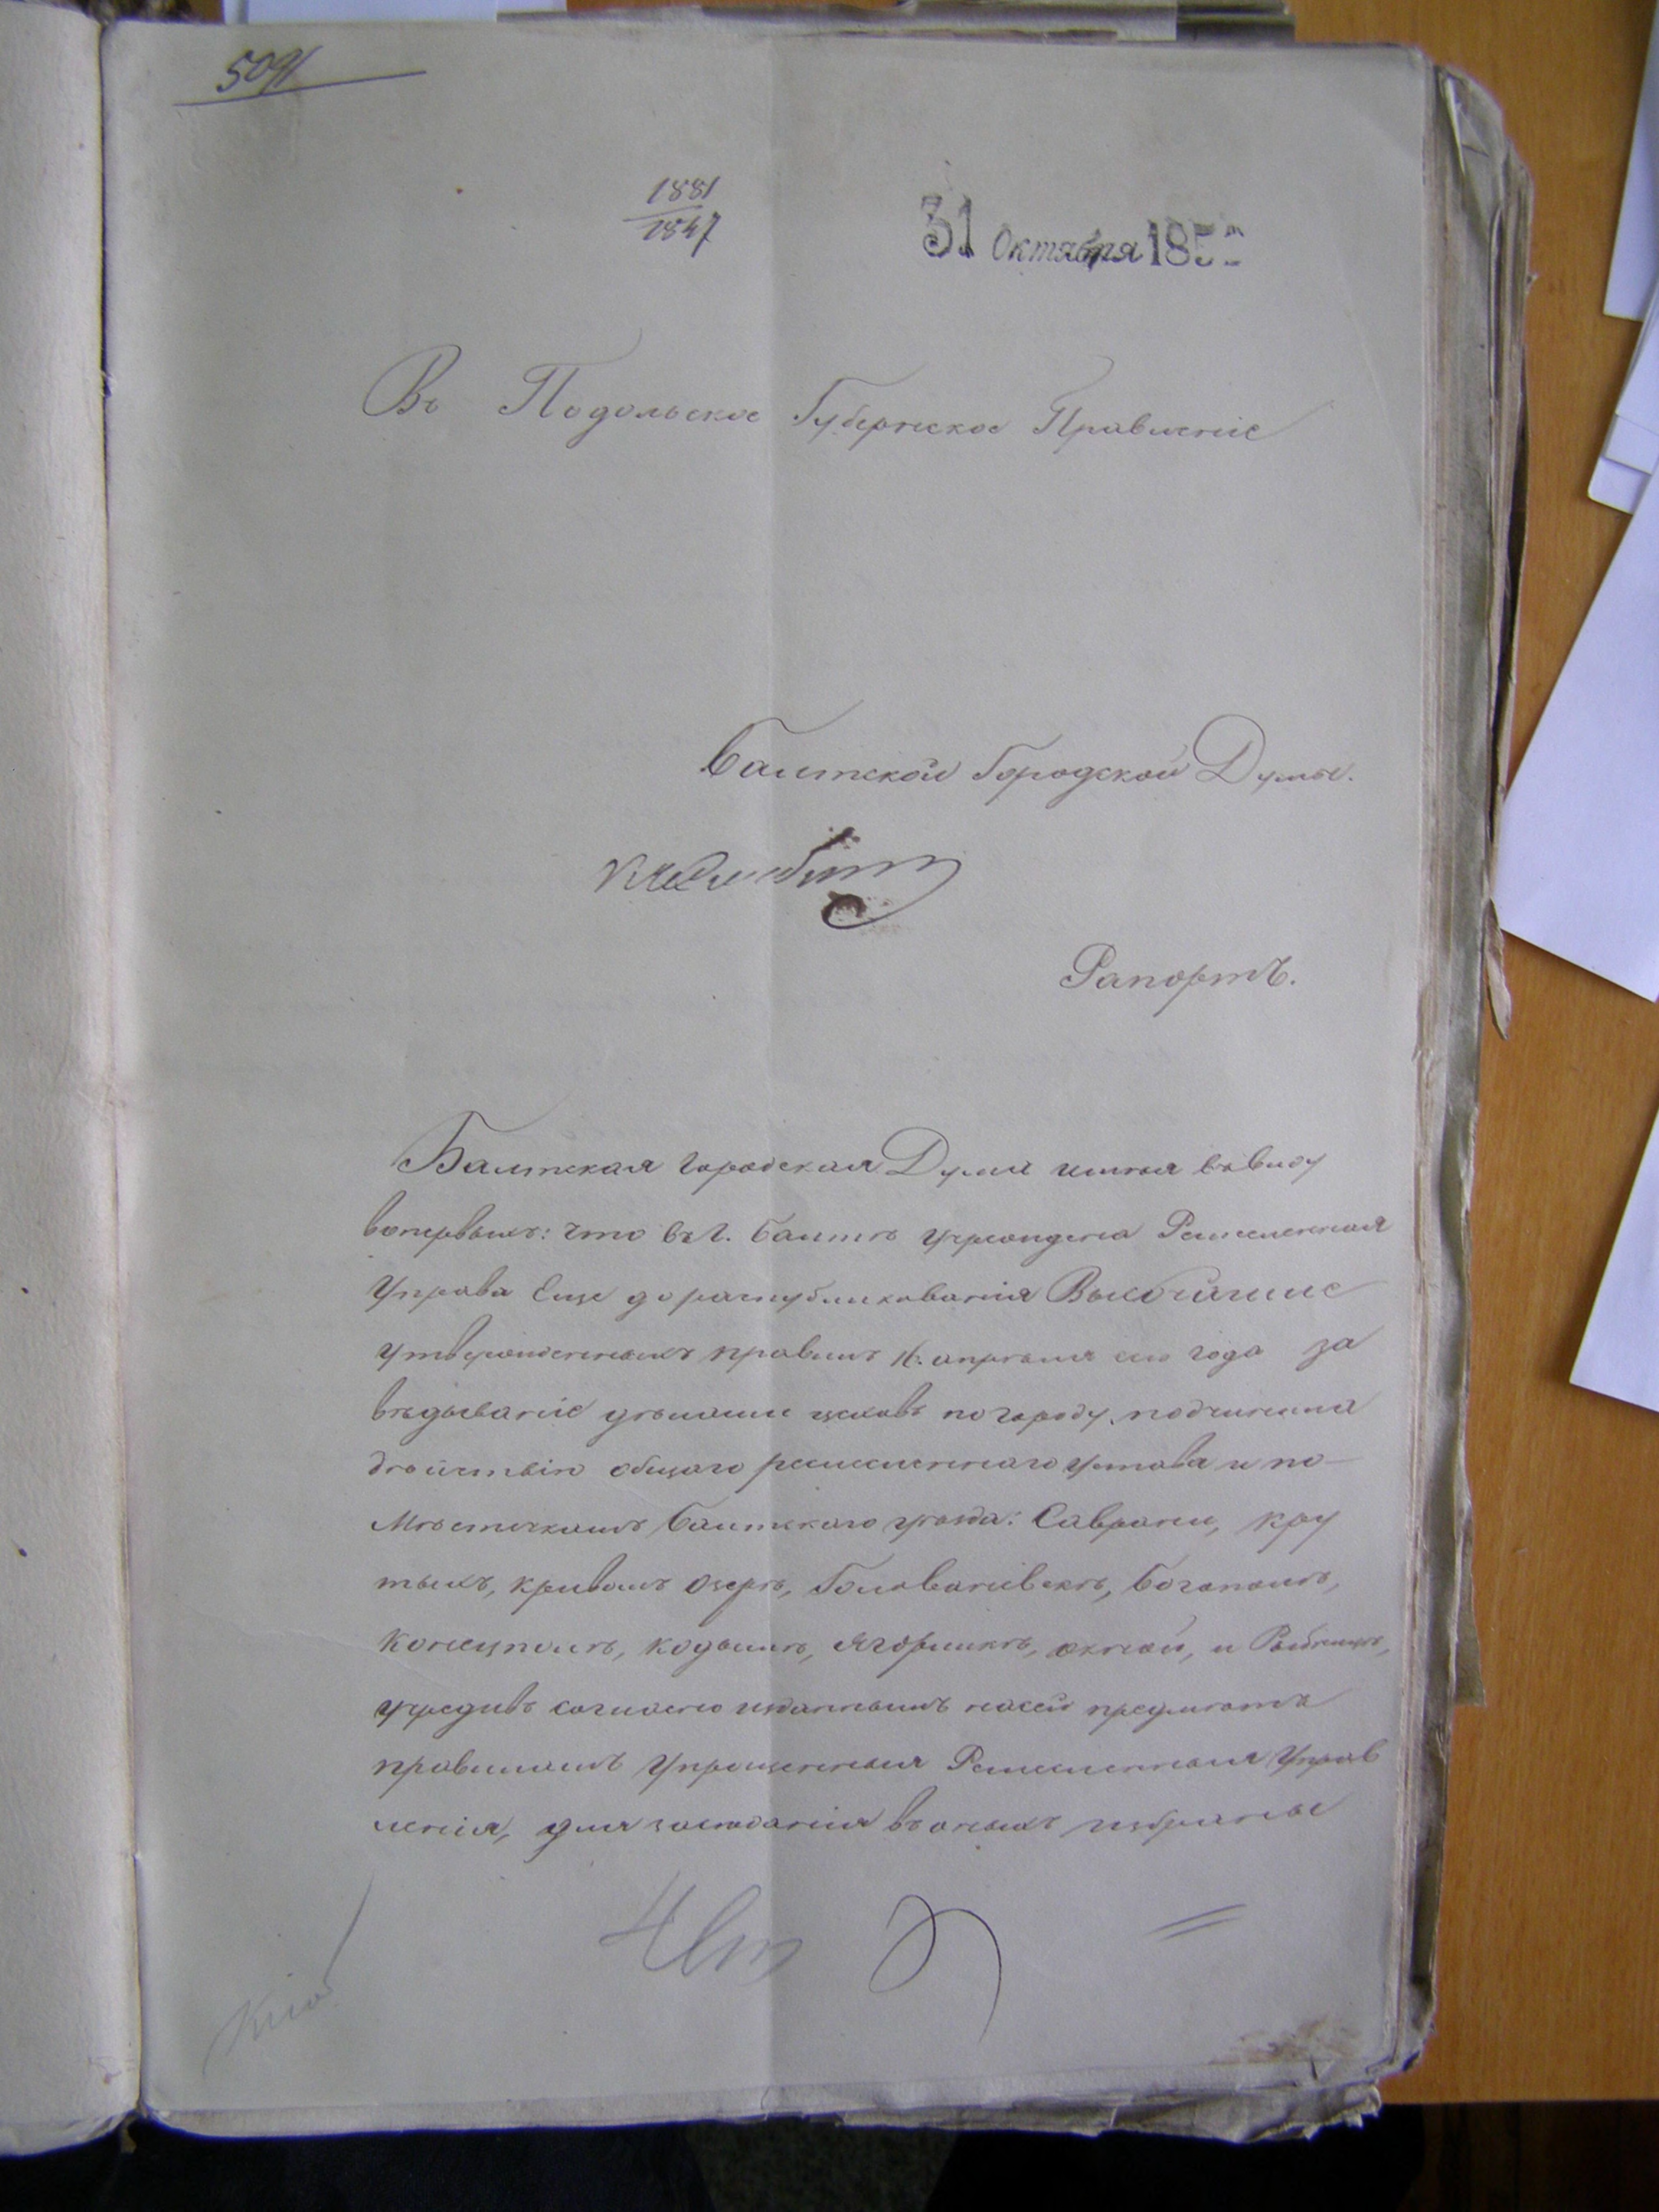 1881
1847
31 Октября 185
Въ Подольское Губернское Правленіе
Балтской Городской Думы.
Рапортъ.
Балтская городская Дума имѣя ввиду
вопервыхъ: что въ г. Балтѣ учреждена Ремесленная
Управа Еще до распубликованія Высочайше
утвержденныхъ правилъ 16. апрѣля сего года за
вѣдываніе дѣлами цеховъ по городу, подчинена
дѣйствію общаго ремесленнаго устава и по-
Мѣстечкамъ Балтскаго уѣзда: Саврани, кру
тыхъ, кривомъ Озерѣ, Голованіевскѣ, Богополѣ,
Конецполѣ, кодымѣ, Ягорлыкѣ, окнѣй, и Рыбницѣ,
учредивъ согласно изданнымъ насей предмѣтъ
правиламъ Упрощенныя Ремесленныя Управ
ленія, для засѣданія въ оныхъ избраны